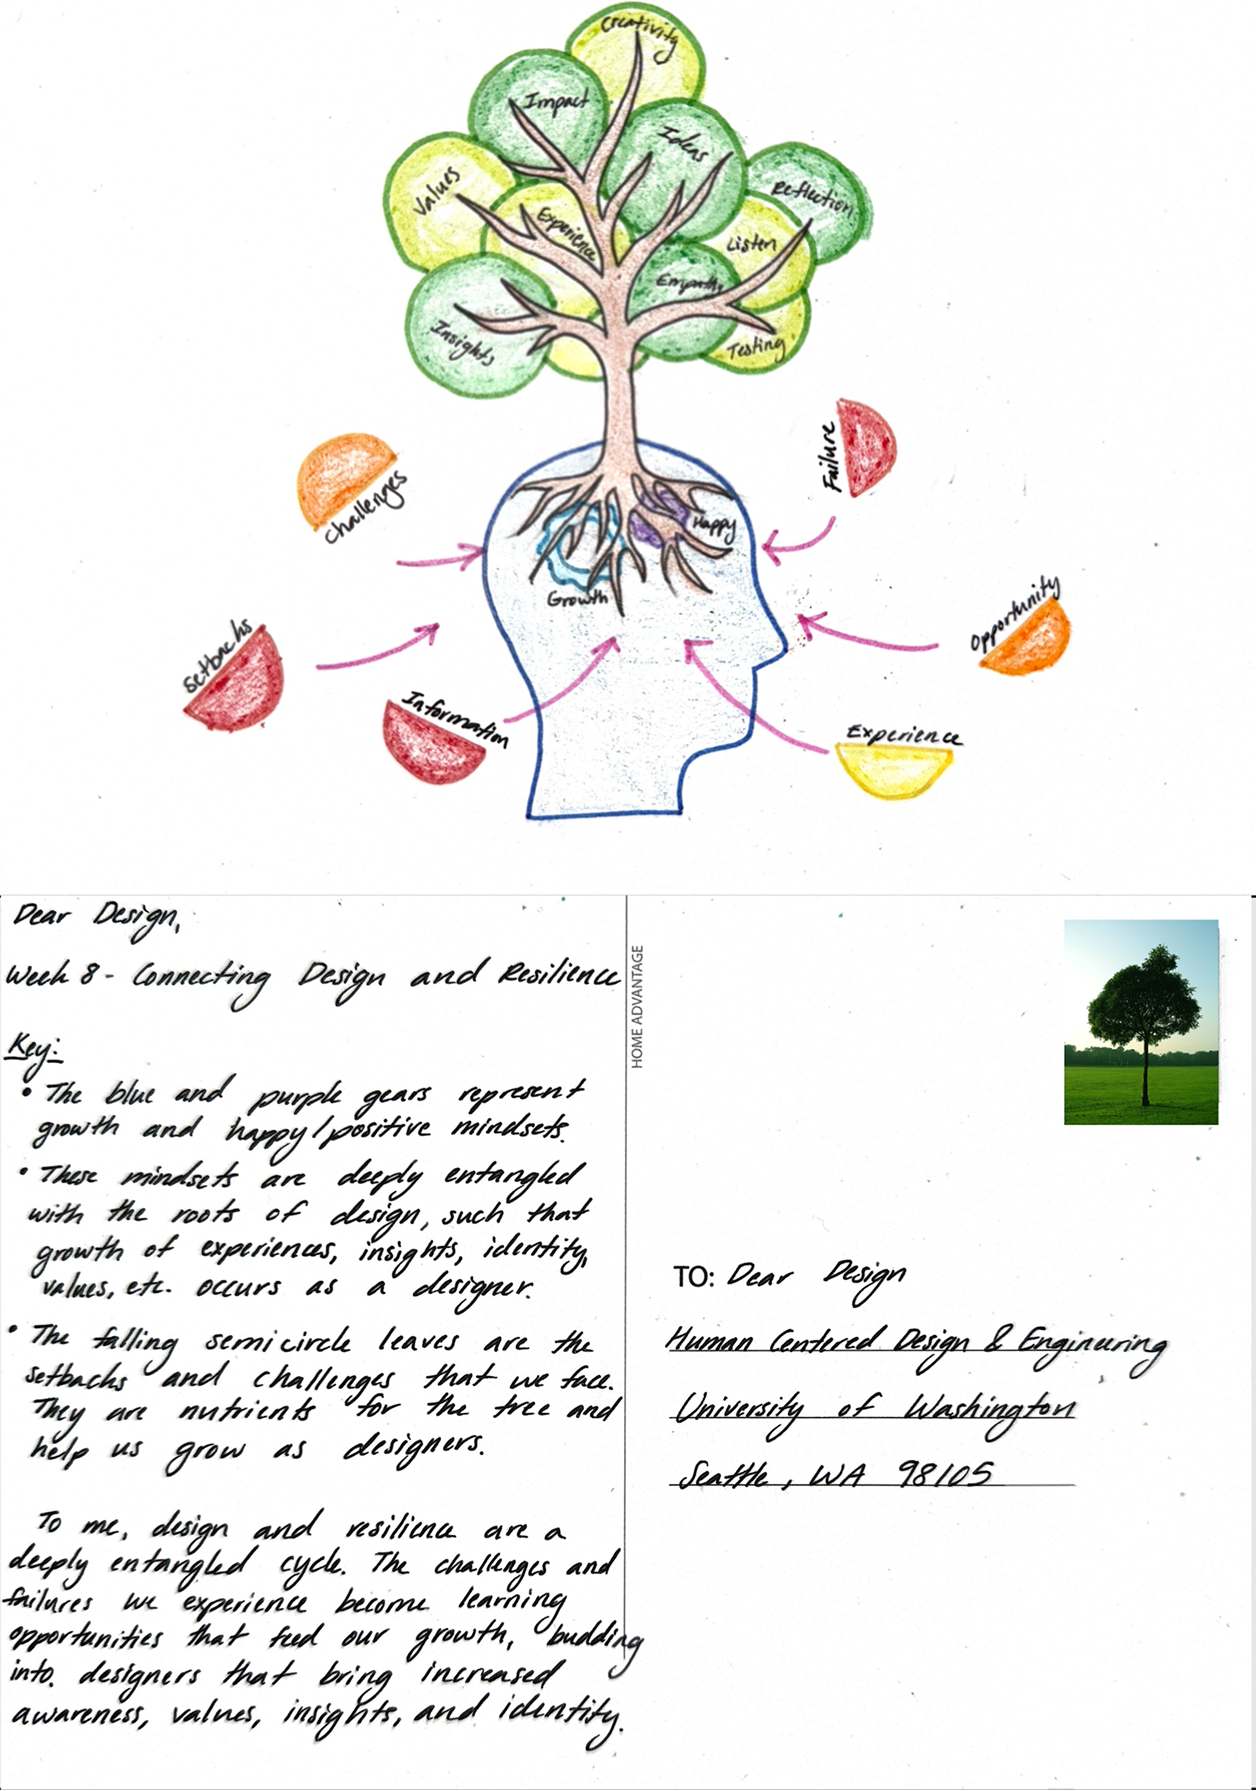 Creativity
Impact
Ideas
Values
Reflection
Experience
Listen
Empathy
Insights
Testing
Failure
Challenges
Happy
Growth
Opportunity
Setbacks
Information
Experience
Dear Design,
Week 8 - Connecting Design and Resilience
Key:
• The blue and purple gears represent
growth and happy/positive mindsets.
• These mindsets are deeply entangled
with the roots of design, such that
growth of experiences, insights, identity,
values, etc. occurs as a designer.
• The falling semicircle leaves are the
setbacks and challenges that we face.
They are nutrients for the tree and
help us grow as designers.
To me, design and resilience are a
deeply entangled cycle. The challenges and
failures we experience become learning
opportunities that feed our growth, budding
into. designers that bring increased
awareness, values, insights, and identity.
HOME ADVANTAGE
TO: Dear Design
Human Centered Design & Engineering
University of Washington
Seattle, WA 98105